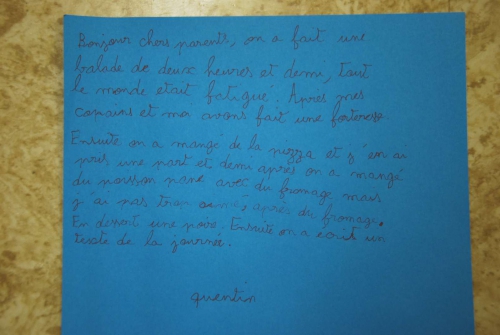 Bonjour chers parents, on a fait une
balade de deux heures et demi, tout
le monde etait fatigué. Apres mes
copains et moi avons fait une forteresse.
Ensuite on a mangé de la pizza et j'en ai
pris une part et demi apres on a mangé
du poisson pané avec du fromage mais
j'ai pas trop aimé, après du fromage.
En dessert une poire. Ensuite on a écrit un
texte de la journée.
quentin